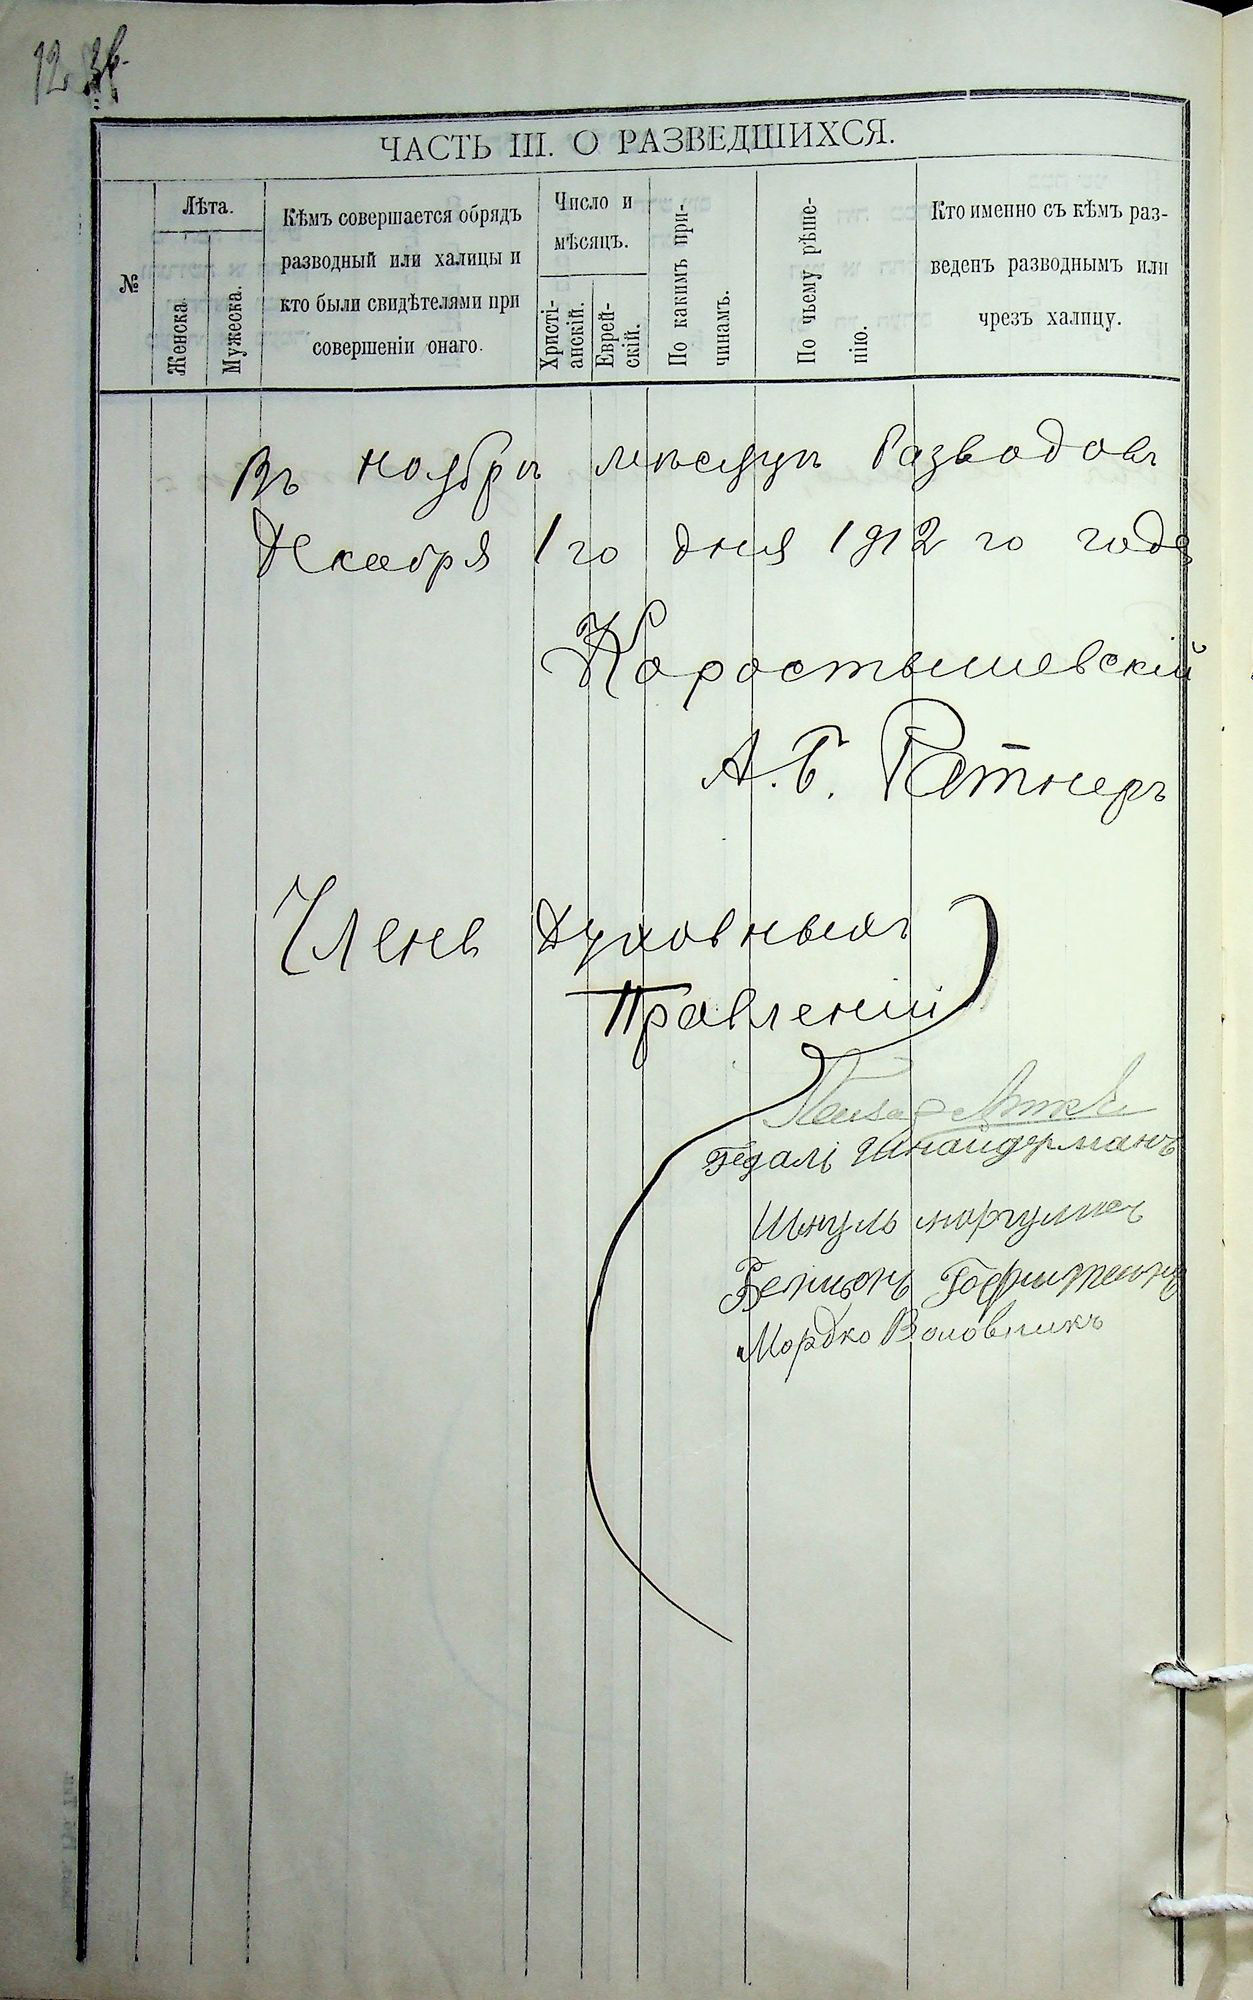 ЧАСТЬ III. О РАЗВЕДШИХСЯ.
№
Лѣта.
Женска.
Мужеска.
Кѣмъ совершается обрядъ
разводный или халицы и
кто были свидѣтелями при
совершеніи онаго.
Число и
мѣсяцъ.
Христі-
анскій.
Еврей-
скій.
По какимъ при-
чинамъ.
По чьему рѣше-
нію.
Кто именно съ кѣмъ раз-
веденъ разводнымъ или
чрезъ халицу.
Въ ноябрѣ мѣсяцѣ Разводовъ
Декабря 1 го дня 1912 го года
Коростышевскій
А. Б. Ратнеръ
Члены Духовныхъ
Правленій
Гедалі Шнайдерманъ
Маргулисъ
Бенціонъ
Мордко Воловникъ